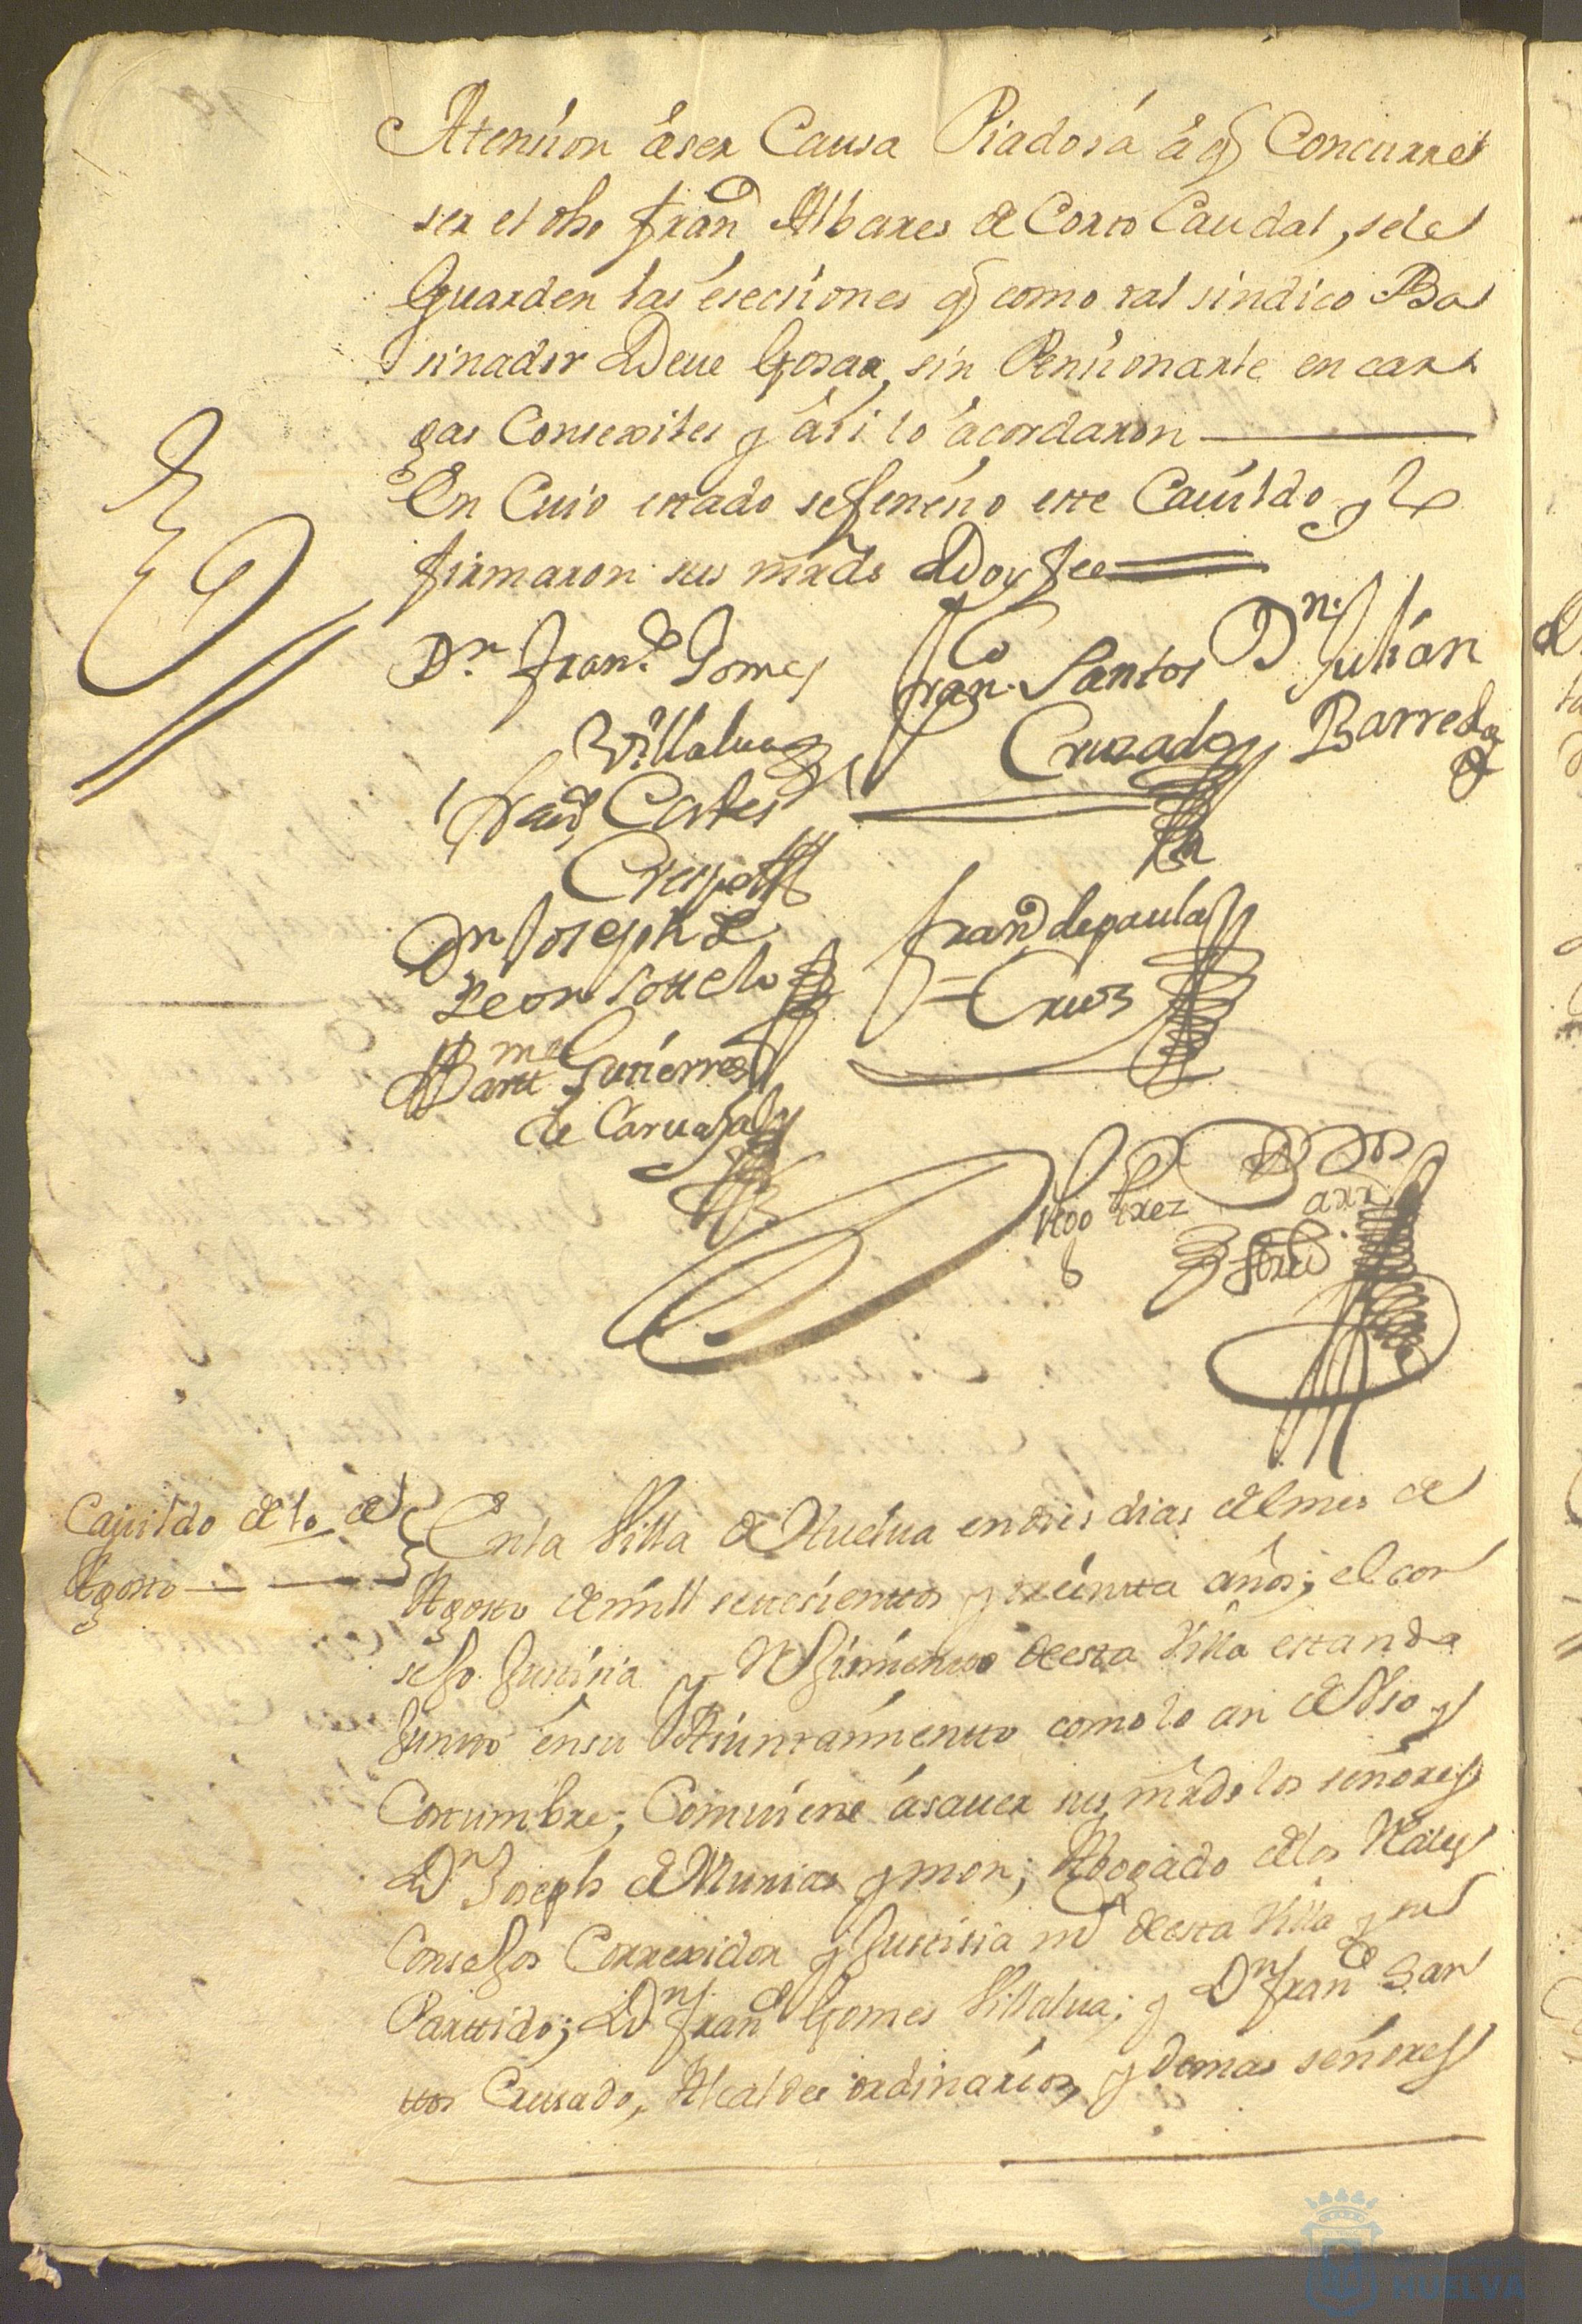 Atenzion à ser Causa Piadosa à q Concurre
ser el dho fran.co Albares de Corto Caudal, se le
Guarden las esecziones q como tal sindico Ba
sinador Deue Gosar, sin Penzionarle en car
gas Consexiles y así lo acordaron
En Cuio estado se feneçio este Cauildo y lo
firmaron sus mrds Doy fee
Dn. Fran.co Gomes
Villalua
Fran.co Santos
Cruzado
Dn. Julián
Barreda
Fran.co Cortes
Crespo
Dn Joseph de
Leon Sotelo
fran.co de paula
Cruz
Bartt.me Gutierres
de Caruajal
Cauildo de 10 de
Agosto
En la Villa de Huelua en dies dias del mes de
Agosto de mill settesienttos y treinta años; el con
sejo Justisia y Rejimientto de esta Villa estando
Juntto en su Aiuntamientto como lo an de Vso y
Costumbre; Comuiene á sauer sus mrds los señores
Dn Joseph de Murias y mon; Abogado de los Rales
Consejos Correxidor y Justisia mr de esta Villa y su
Parttido; Dn fran.co Gomes Villalua; y Dn fran.co San
ttos Crusado, Alcaldes ordinarios, y demas señores
HUELVA